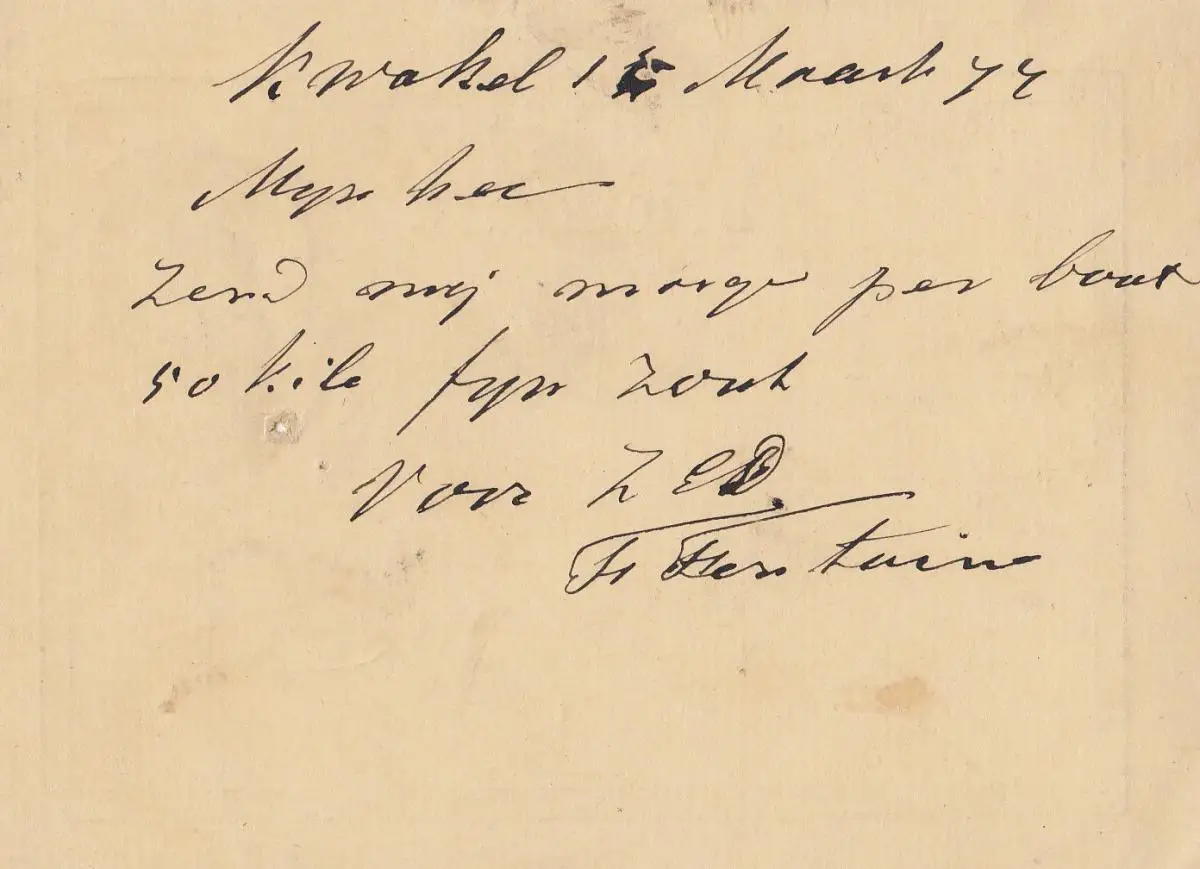 Kwakel 15 Maart 77
Mijn hee
Zend mij morge per boot
50 kilo fyn Zout
Voor Z E D
F